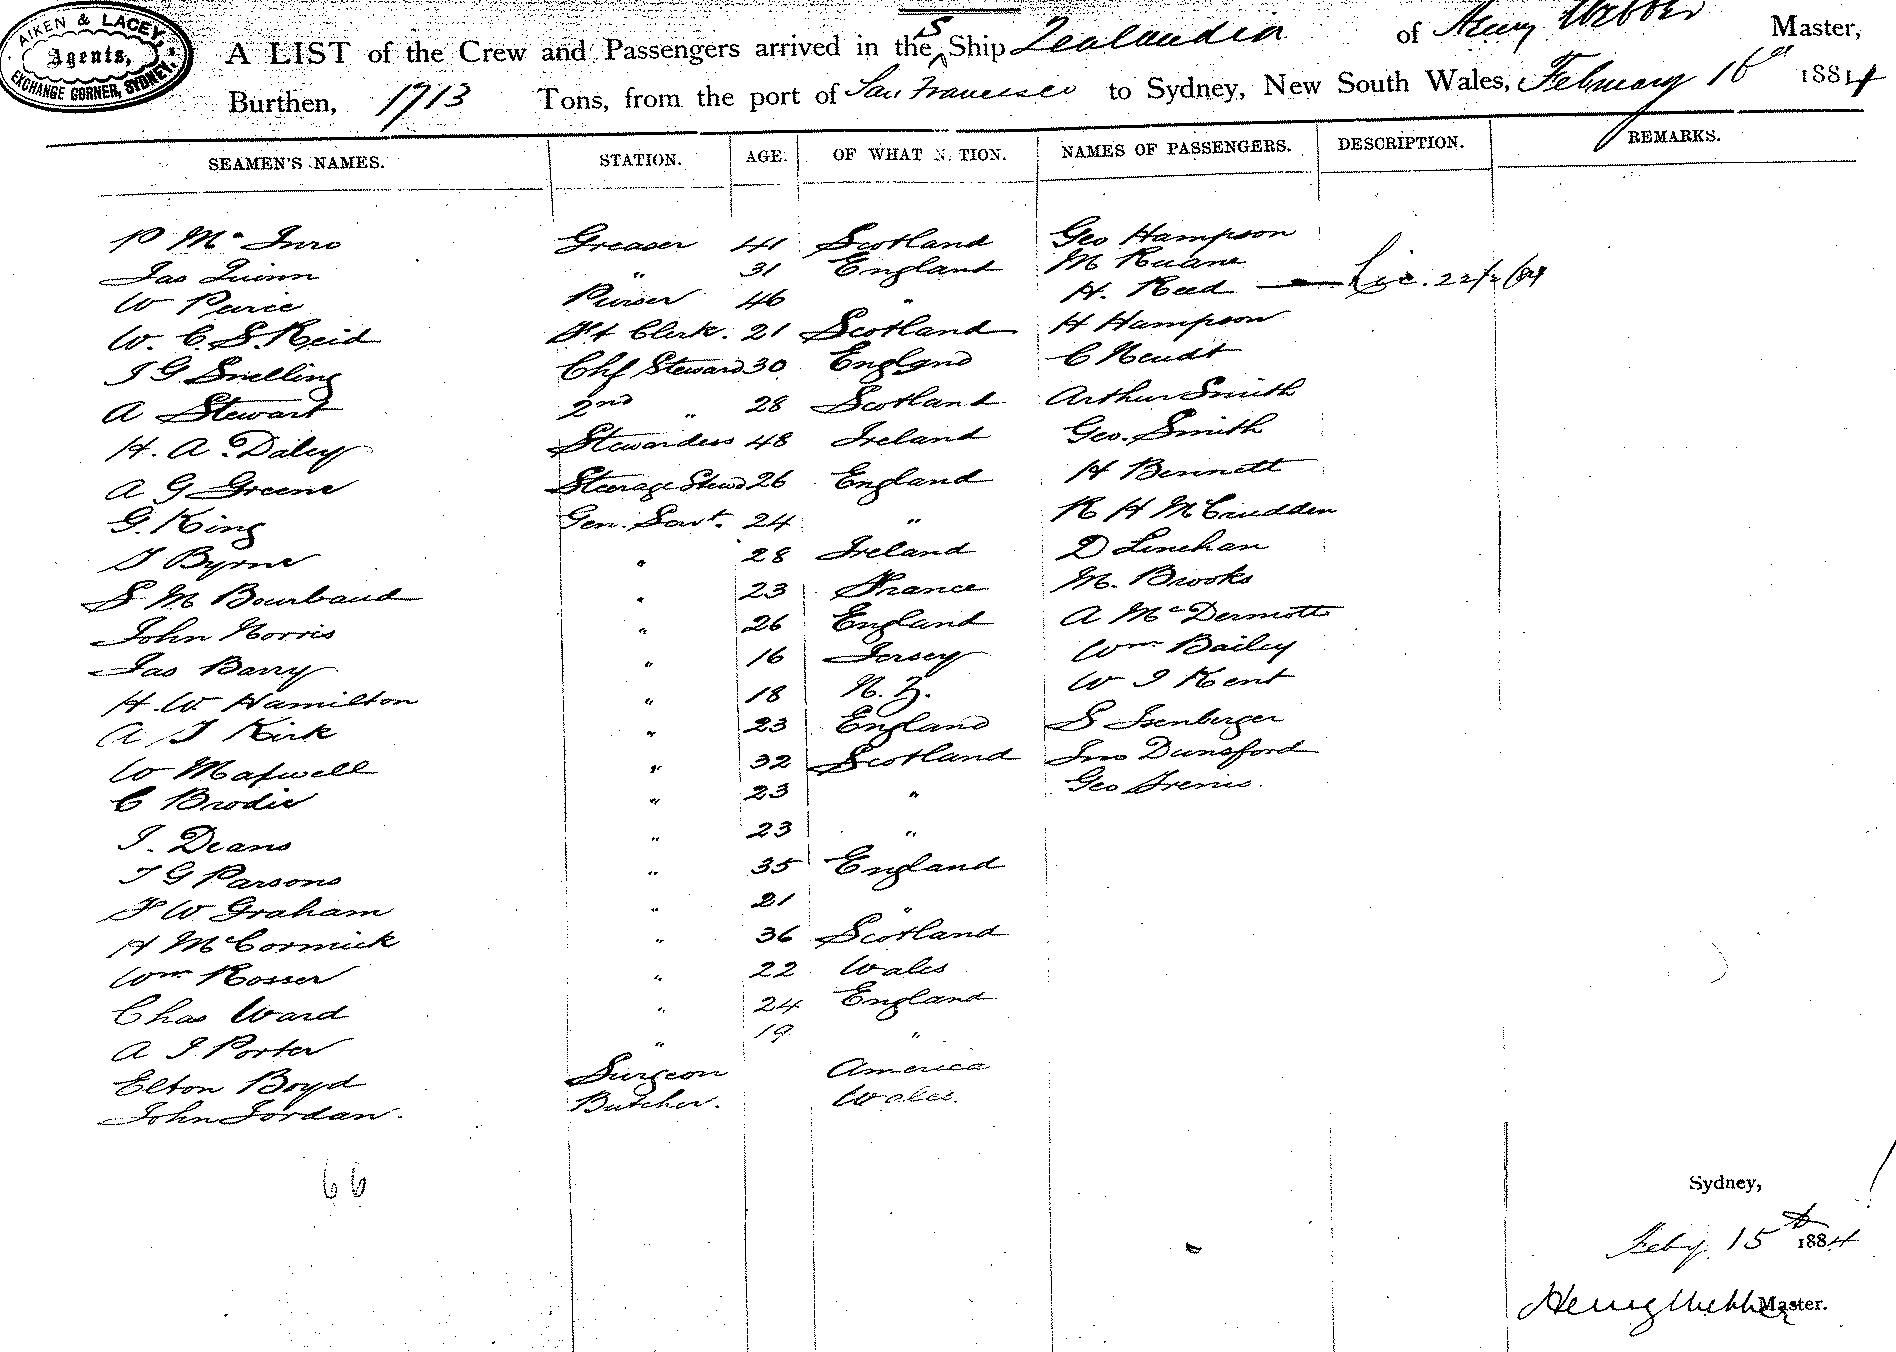 AIKEN & LACEY,
Agents,
EXCHANGE CORNER, SYDNEY.
A LIST of the Crew and Passengers arrived in the S Ship Zealandia of Henry Webber Master,
Burthen, 1713 Tons, from the port of San Francisco to Sydney, New South Wales, February 16th 1884
SEAMEN'S NAMES. STATION. AGE. OF WHAT N TION. NAMES OF PASSENGERS. DESCRIPTION. REMARKS.
P Mc Inro Greaser 41 Scotland Geo Hampson
Jas Quinn " 31 England M Ruane
W Peirce Purser 46 " H. Reed
W. C. S. Reid Ft Clerk. 21 Scotland H Hampson
J G Snelling Chf Steward 30 England C Neudt
A Stewart 2nd " 28 Scotland Arthur Smith
H. A. Daley Stewardess 48 Ireland Geo. Smith
A G Greene Steerage Stewd 26 England H Bennett
G. King Gen. Servt. 24 " R H McCaudden
J Byrne " 28 Ireland D Linehan
S M Bourbaud " 23 France M. Brooks
John Norris " 26 England A McDermott
Jas Barry " 16 Jersey Wm Bailey
H. W. Hamilton " 18 N. Z. W J Kent
A J Kirk " 23 England S Isenberger
W Maxwell " 32 Scotland Jno Dunsford
C Brodie " 23 " Geo
J. Deans " 23 "
J G Parsons " 35 England
F W Graham " 21 "
H McCormick " 36 Scotland
Wm Rosser " 22 Wales
Chas Ward " 24 England
A J. Porter " 19 "
Elton Boyd Surgeon America
John Jordan. Butcher. Wales.
66
Sydney,
Feby 15th 1884
Henry Webber Master.